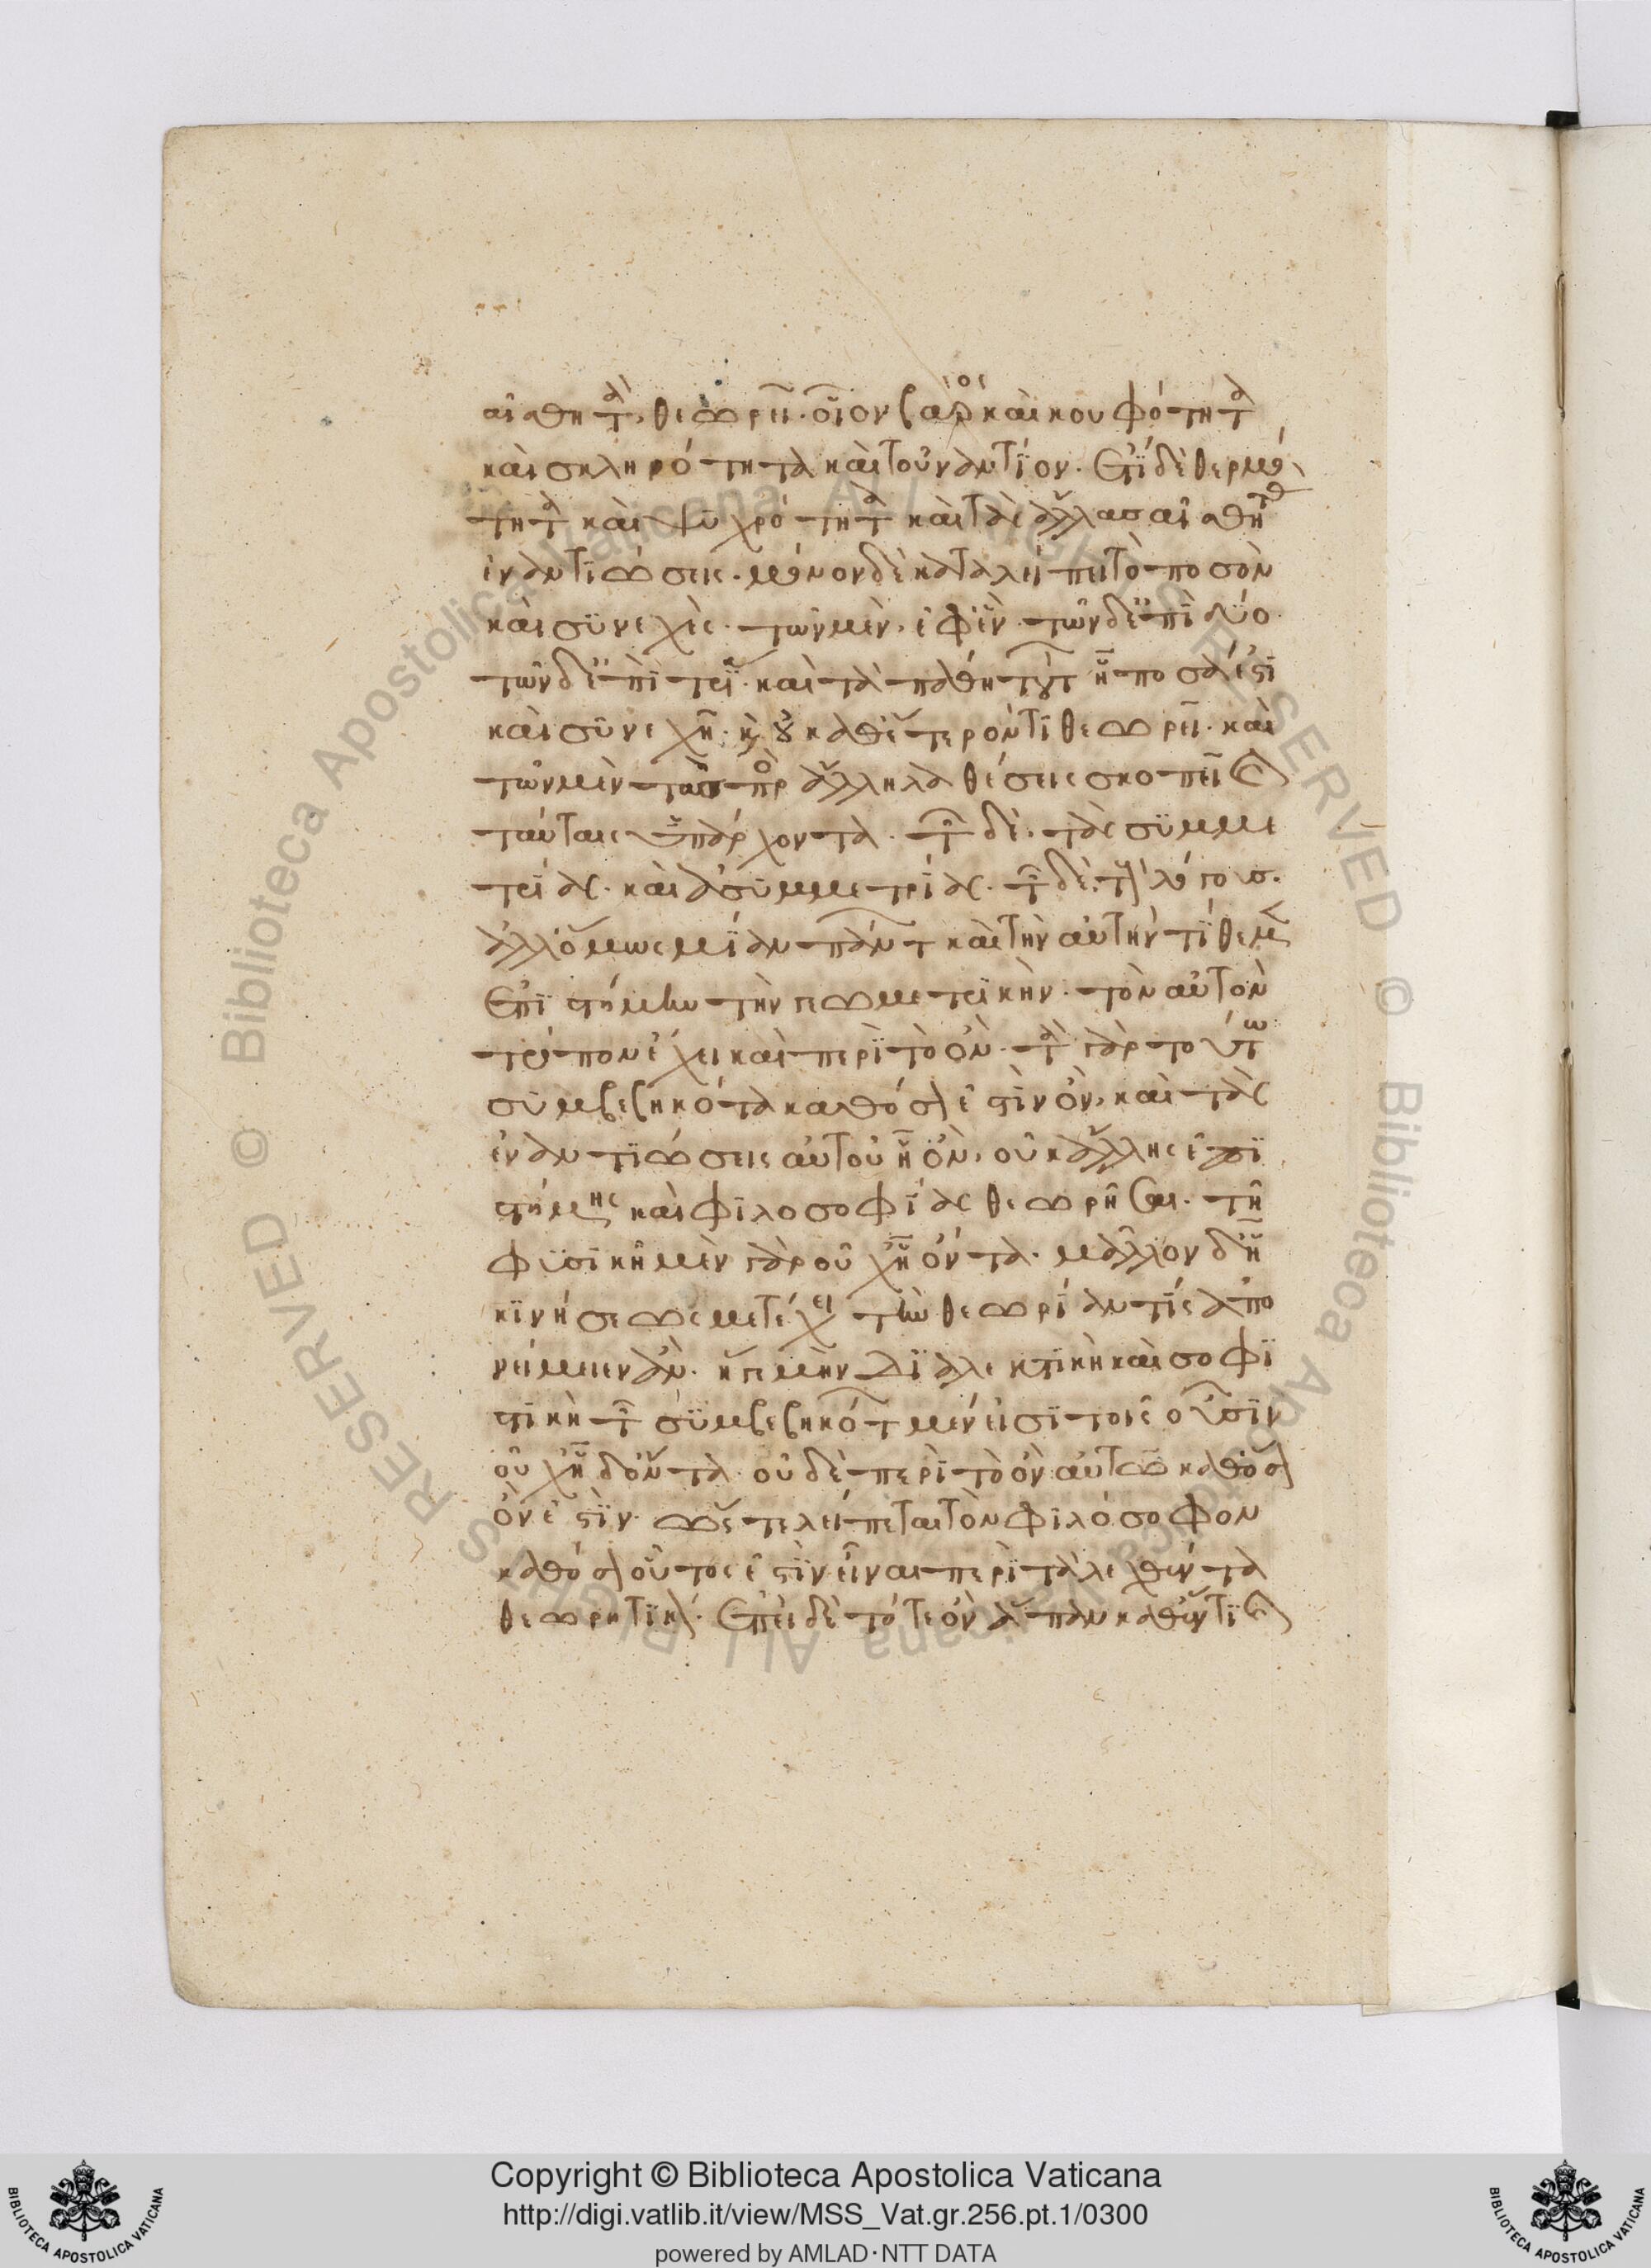 αἰσθητὰ, θεωρεῖ. οἷον βάρος καὶ κουφότητα
καὶ σκληρότητα καὶ τοὐναντίον. ἔτι δὲ θερμό
τητα καὶ ψυχρότητα καὶ τὰς ἄλλας αἰσθητὰς
ἐναντιώσεις. μόνον δὲ καταλείπει τὸ ποσὸν
καὶ συνεχές. τῶν μὲν, ἐφ' ἓν τῶν δ' ἐπὶ δύο.
τῶν δ' ἐπὶ τρία. καὶ τὰ πάθη τὰ τούτων ἧ ποσά ἐστι
καὶ συνεχῆ. καὶ οὐ καθ' ἕτερόν τι θεωρεῖ. καὶ
τῶν μὲν τὰς πρὸς ἄλληλα θέσεις σκοπεῖ καὶ τὰ
ταύταις ὑπάρχοντα. τῶν δὲ, τὰς συμμε
τρίας. καὶ ἀσυμμετρίας. τῶν δὲ, τοὺς λόγους.
ἀλλ' ὅμως μίαν πάντων καὶ τὴν αὐτὴν τίθεμεν
ἐπιστήμην τὴν γεωμετρικήν. τὸν αὐτὸν
τρόπον ἔχει καὶ περὶ τὸ ὄν. τὰ γὰρ τούτω
συμβεβηκότα καθ' ὅσον ἐστὶν ὄν, καὶ τὰς
ἐναντιώσεις αὐτοῦ ἧ ὄν, οὐκ ἄλλης ἐπι
στήμης καὶ φιλοσοφίας θεωρῆσαι. τῆ
φυσικῆ μὲν γὰρ οὐχ ἧ ὄντα. μᾶλλον δ' ἧ
κινήσεως μετέχει τὴν θεωρίαν τίς ἀπο
νείμειεν ἄν. ἥ γε μὴν διαλεκτικὴ καὶ σοφι
στικὴ τῶν συμβεβηκότων μέν εἰσι τοῖς οὖσιν
οὐχ ἧ δ' ὄντα. οὐδὲ περὶ τὸ ὂν αὐτὸ καθ' ὅσον
ὄν ἐστιν. ὥστε λείπεται τὸν φιλόσοφον
καθ' ὅσον οὗτος ἐστὶν εἶναι περὶ τὰ λεχθέντα
θεωρητικόν. ἐπεὶ δὲ τό τε ὂν ἅπαν καθ' ἕν τι καὶ
Copyright © Biblioteca Apostolica Vaticana
http://digi.vatlib.it/view/MSS_Vat.gr.256.pt.1/0300
powered by AMLAD·NTT DATA
BIBLIOTECA APOSTOLICA VATICANA
BIBLIOTECA APOSTOLICA VATICANA